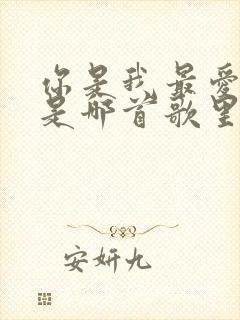 你是我最爱
是那首歌里
安妍九